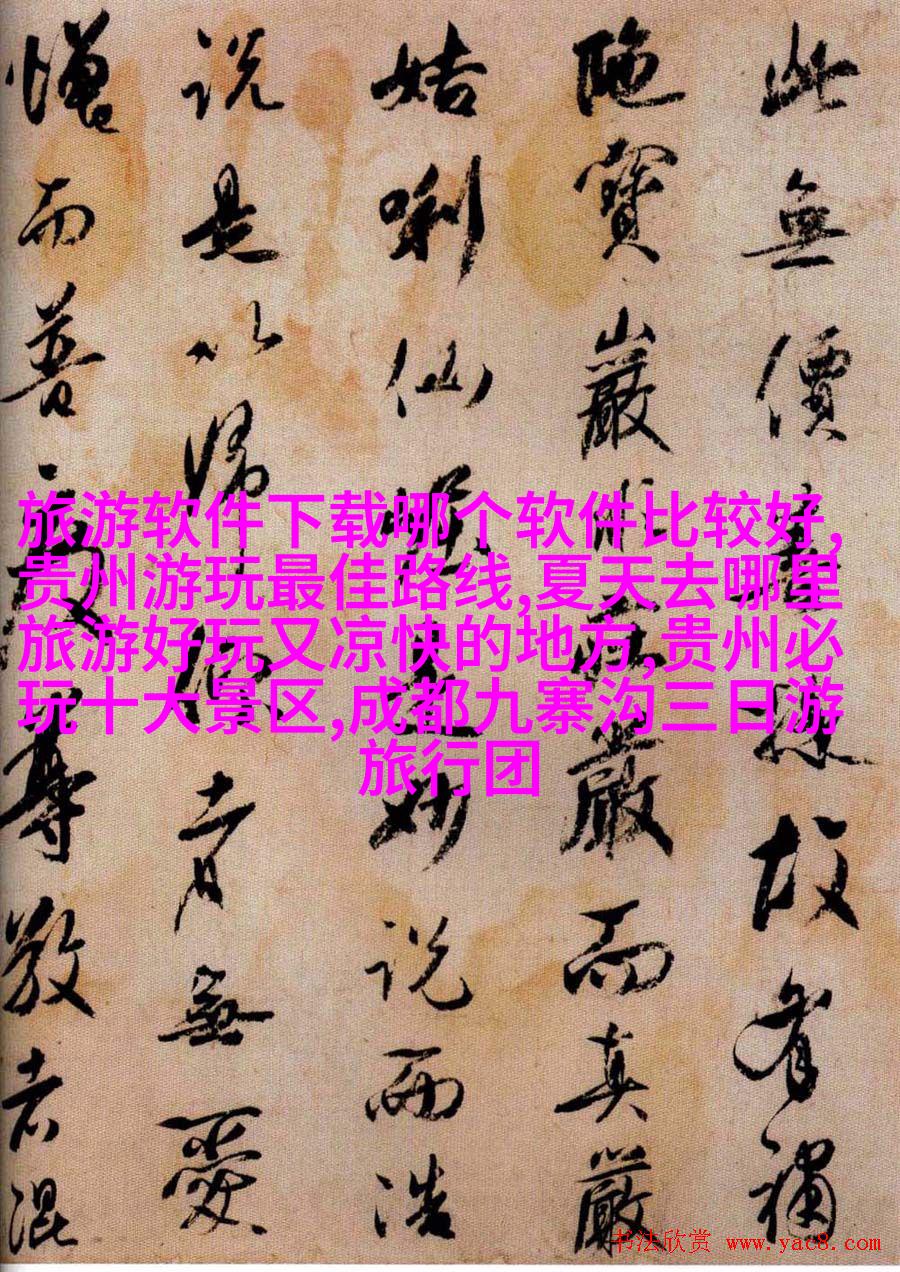 此無價故有補
陁寶嚴嚴而真嚴
姑唎仙妙説而浩
説是以歸者無愛
憎而普敬者混
旅游软件下载哪个软件比较好,
贵州游玩最佳路线,夏天去哪里
旅游好玩又凉快的地方,贵州必
玩十大景区,成都九寨沟三日游
旅行团
书法欣赏 www.yac8.com